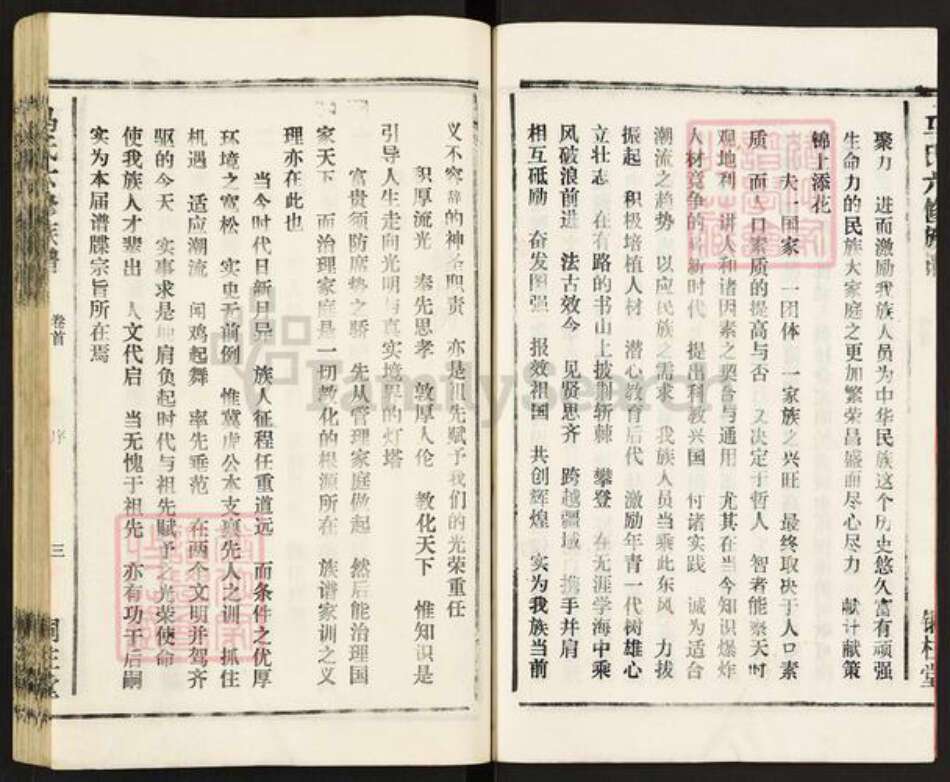 聚力　进而激励我族人员为中华民族这个历史悠久富有顽强
生命力的民族大家庭之更加繁荣昌盛而尽心尽力　献计献策
锦上添花
夫一国家　一团体　一家族之兴旺　最终取决于人口素
质　而人口素质的提高与否　又决定于哲人　智者能察天时
观地利　讲人和诸因素之契备与通用　尤其在当今知识爆炸
人材竞争的崭新时代　提出科教兴国　付诸实践　诚为适合
潮流之趋势　以应民族之需求　我族人员当乘此东风　力拔
振起　积极培植人材　潜心教育后代　激励年青一代树雄心
立壮志　在有路的书山上披荆斩棘　攀登　在无涯学海中乘
风破浪前进　法古效今　见贤思齐　跨越疆域　携手并肩
相互砥励　奋发图强　报效祖国　共创辉煌　实为我族当前
义不容辞的神圣职责　亦是祖先赋予我们的光荣重任
积厚流光　奉先思孝　敦厚人伦　教化天下　惟知识是
引导人生走向光明与真实境界的灯塔
富贵须防席势之骄　先从管理家庭做起　然后能治理国
家天下　而治理家庭是一切教化的根源所在　族谱家训之义
理亦在此也
当今时代日新月异　族人征程任重道远　而条件之优厚
环境之宽松　实史无前例　惟冀虎公本支裔先人之训　抓住
机遇　适应潮流　闻鸡起舞　率先垂范　在两个文明并驾齐
驱的今天　实事求是地肩负起时代与祖先赋予之光荣使命
使我族人才辈出　人文代启　当无愧于祖先　亦有功于后嗣
实为本届谱牒宗旨所在焉
卷首
序
三
FamilySearch